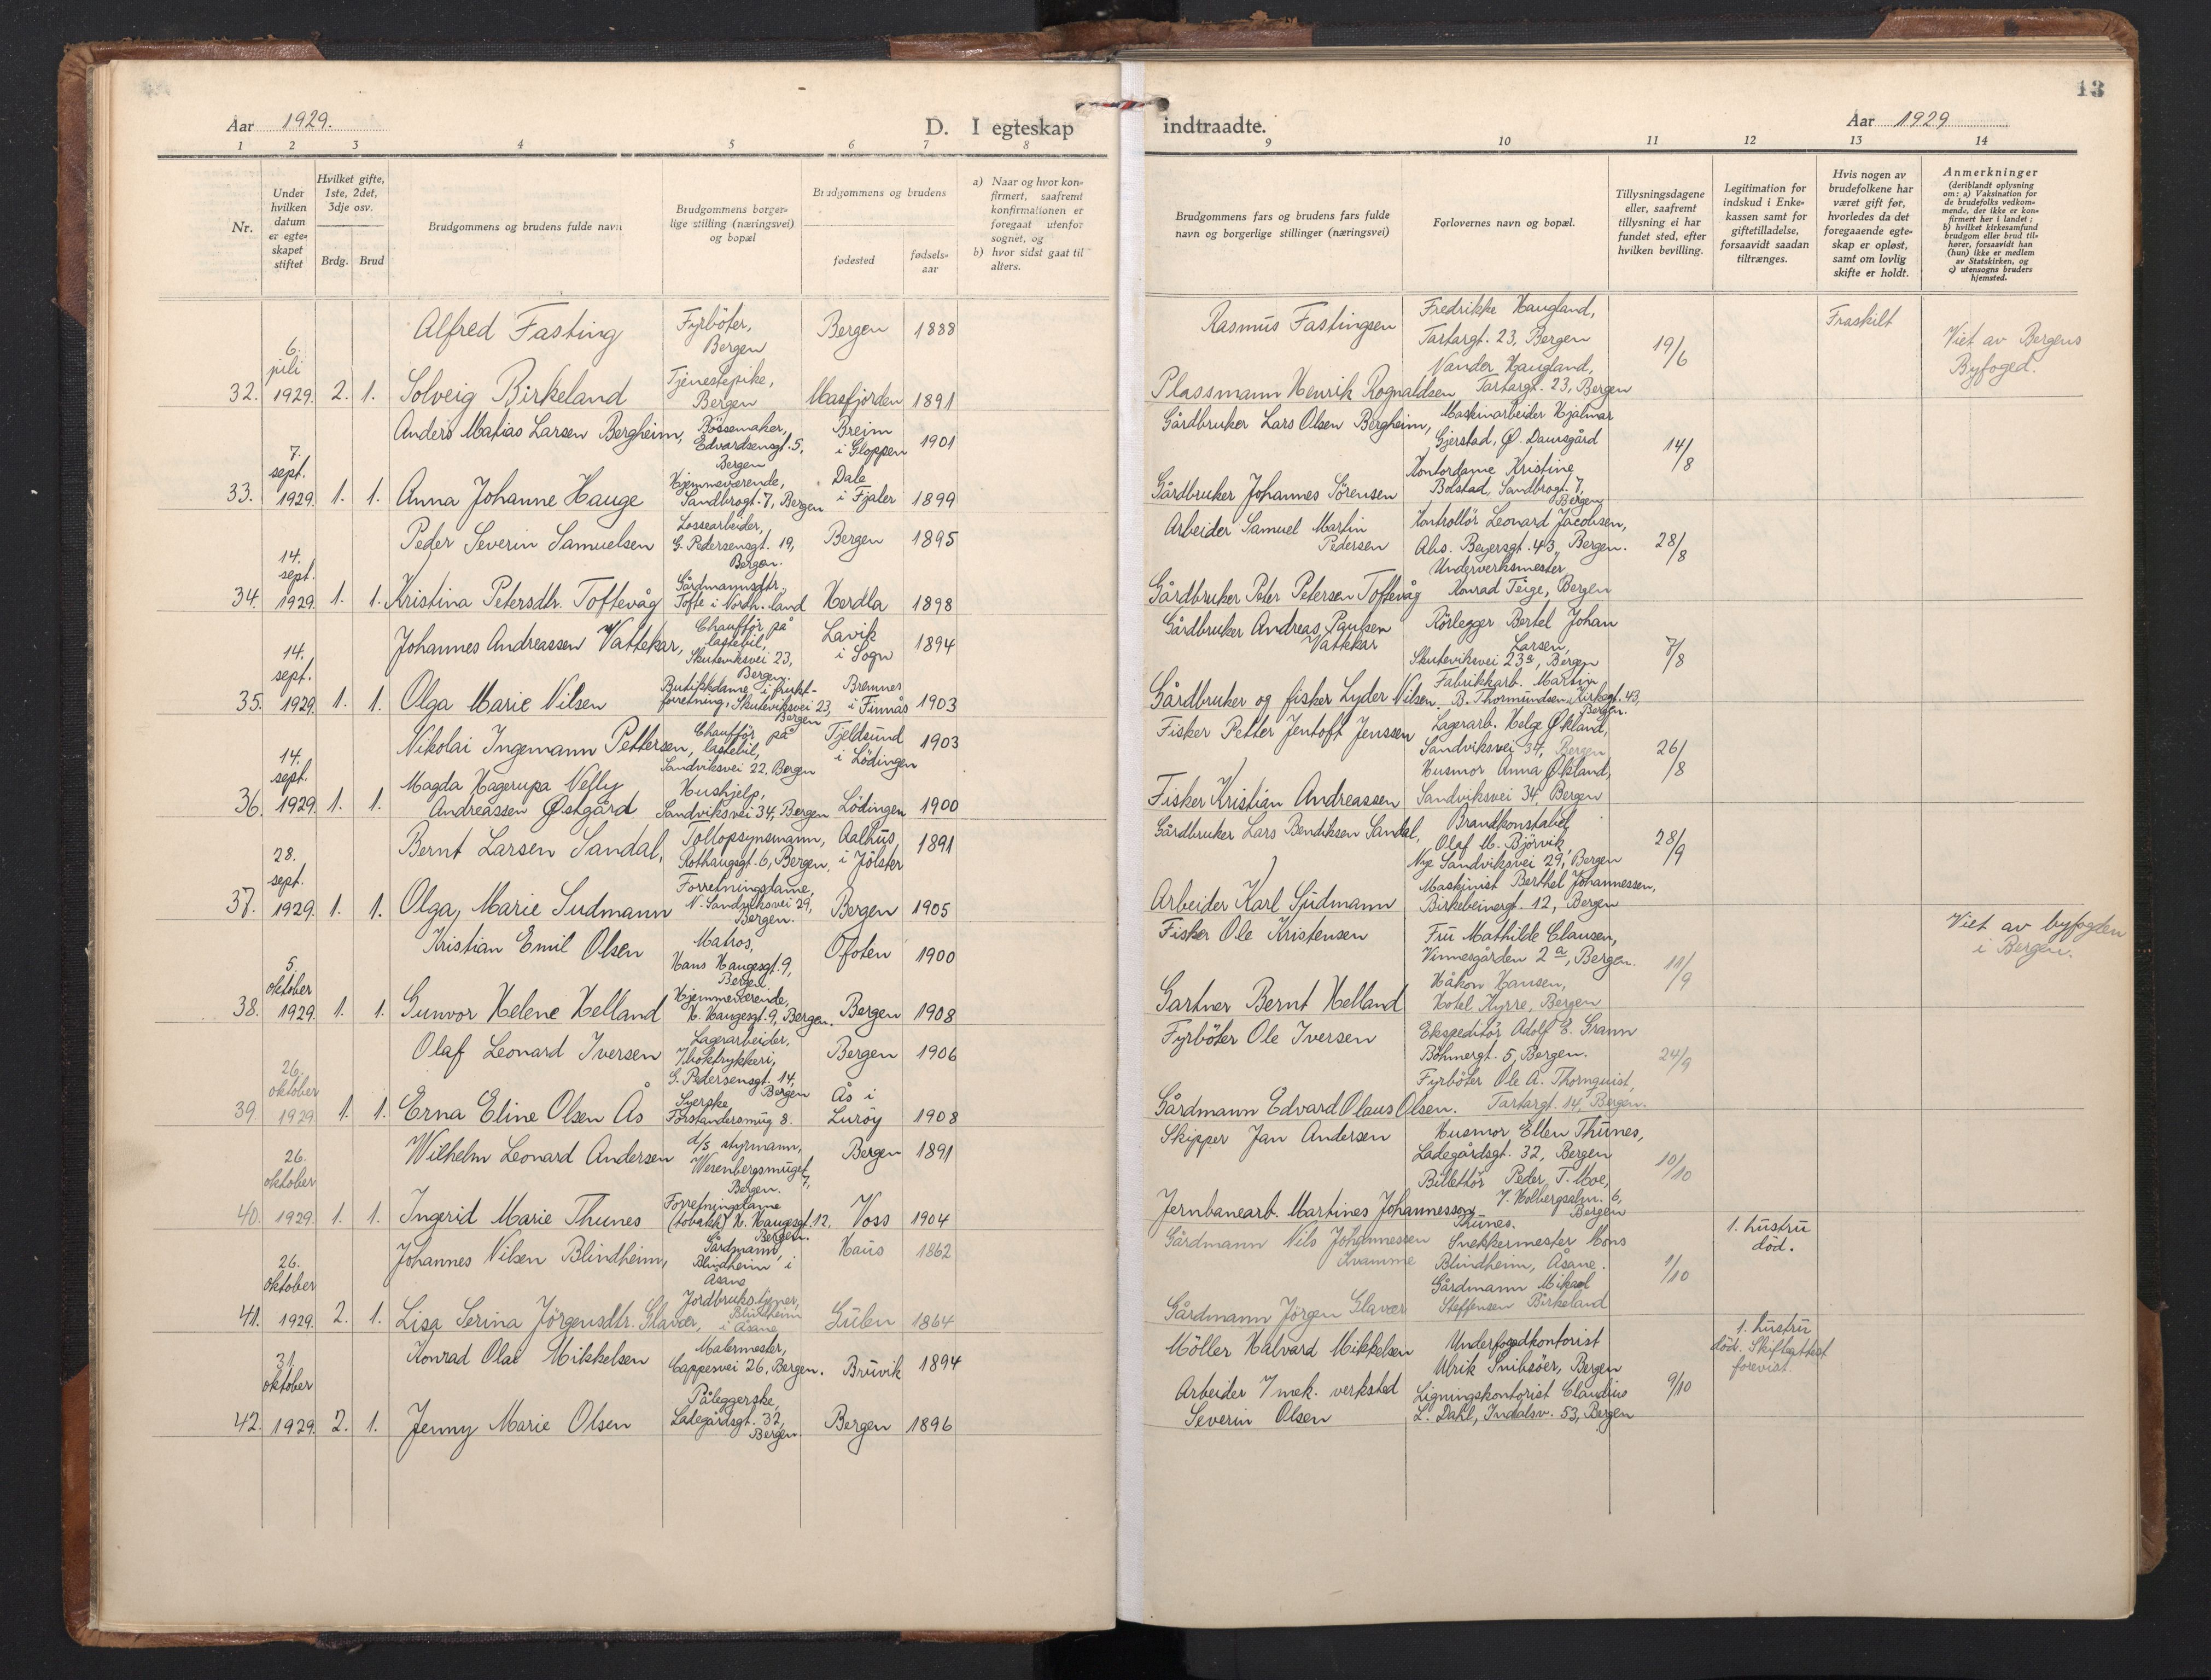 Aar 1929.
D. I egteskap
1 2 3 4 5 6 7 8
Nr.
Under hvilken datum er egteskapet stiftet
Hvilket gifte, 1ste, 2det, 3dje osv.
Brdg. Brud
Brudgommens og brudens fulde navn
Brudgommens borgerlige stilling (næringsvei) og bopæl
Brudgommens og brudens
fødested
fødselsaar
a) Naar og hvor konfirmert, saafremt konfirmationen er foregaat utenfor sognet, og
b) hvor sidst gaat til alters.
32. 6. juli 1929. 2. 1.
Alfred Fasting Fyrböter, Bergen Bergen 1888
Solveig Birkeland Tjenestepike, Bergen Masfjorden 1891
33. 7. sept. 1929. 1. 1.
Anders Matias Larsen Bergheim, Bössemaker, Edvardsensgt. 5, Bergen Breim i Gloppen 1901
Anna Johanne Hauge Hjemmeværende, Sandbrogt. 7, Bergen Dale i Fjaler 1899
34. 14. sept. 1929. 1. 1.
Peder Severin Samuelsen Lossearbeider, G. Pedersensgt. 19, Bergen. Bergen 1895
Kristina Petersdtr. Toftevåg Gårdmannsdtr., Tofte i Nordh.land Herdla 1898
35. 14. sept. 1929. 1. 1.
Johannes Andreassen Vattekar, Chaufför på lastebil, Skuteviksvei 23, Bergen. Lavik i Sogn 1894
Olga Marie Nilsen Butikkdame i fruktforretning, Skuteviksvei 23, Bergen Bremnes i Finnås 1903
36. 14. sept. 1929. 1. 1.
Nikolai Ingemann Pettersen, Chaufför på lastebil, Sandviksvei 22, Bergen Tjeldsund i Lödingen 1903
Magda Hagerupa Nelly Andreassen Østgård Hushjelp, Sandviksvei 34, Bergen Lödingen 1900
37. 28. sept. 1929. 1. 1.
Bernt Larsen Sandal, Tollopsynsmann, Rothaugsgt. 6, Bergen, Aalhus i Jölster 1891
Olga Marie Sudmann Forretningsdame, N. Sandviksvei 29, Bergen. Bergen 1905
38. 5. oktober 1929. 1. 1.
Kristian Emil Olsen Matros, Hans Haugesgt. 9, Bergen. Ofoten 1900
Gunvor Helene Helland Hjemmeværende, H. Haugesgt. 9, Bergen. Bergen 1908
39 26. oktober 1929 1. 1.
Olaf Leonard Iversen Lagerarbeider, I boktrykkeri, G. Pedersensgt. 14, Bergen Bergen 1906
Erna Eline Olsen Ås Syerske Forstandersmug 8. Ås i Luröy 1908
40. 26. oktober 1929. 1. 1.
Wilhelm Leonard Andersen d/s styrmann, Werenbergsmuget 7, Bergen. Bergen 1891
Ingerid Marie Thunes Forretningsdame (tobakk) H. Haugesgt. 12, Bergen. Voss 1904
41. 26. oktober 1929. 2. 1.
Johannes Nilsen Blindheim, Gårdmann, Blindheim i Åsane Haus 1862
Lisa Serina Jörgensdtr. Glavær, Jordbruks.tjener, Blindheim i Åsane Gulen 1864
42. 31. oktober 1929. 2. 1.
Konrad Olai Mikkelsen Malermester, Cappesvei 26, Bergen. Bruvik 1894
Jenny Marie Olsen Påleggerske, Ladegårdsgt. 32, Bergen. Bergen 1896
13
indtraadte.
Aar 1929
9 10 11 12 13 14
Brudgommens fars og brudens fars fulde navn og borgerlige stillinger (næringsvei)
Forlovernes navn og bopæl.
Tillysningsdagene eller, saafremt tillysning ei har fundet sted, efter hvilken bevilling.
Legitimation for indskud i Enkekassen samt for giftetilladelse, forsaavidt saadan tiltrænges.
Hvis nogen av brudefolkene har været gift før, hvorledes da det foregaaende egteskap er opløst, samt om lovlig skifte er holdt.
Anmerkninger (deriblandt oplysning om: a) Vaksination for de brudefolks vedkommende, der ikke er konfirmert her i landet; b) hvilket kirkesamfund brudgom eller brud tilhører, forsaavidt han (hun) ikke er medlem av Statskirken, og c) utensogns bruders hjemsted.
Rasmus Fastingsen Fredrikke Haugland, Tartargt. 23, Bergen 19/6 Fraskilt Viet av Bergens Byfoged.
Plassmann Henrik Rognaldsen Nander Haugland, Tartargt. 23, Bergen
Gårdbruker Lars Olsen Bergheim, Maskinarbeider Hjalmar Gjerstad, Ø. Damsgård 14/8
Gårdbruker Johannes Sörensen Kontordame Kristine Bolstad, Sandbrogt. 7, Bergen
Arbeider Samuel Martin Pedersen Kontrollör Leonard Jacobsen, Abs. Beyersgt. 43, Bergen. 28/8
Gårdbruker Peter Petersen Toftevåg Underverksmester Konrad Teige, Bergen
Gårdbruker Andreas Paulsen Vattekar Rörlegger Bertel Johan Larsen, Skuteviksvei 23a, Bergen 7/8
Gårdbruker og fisker Lyder Nilsen Fabrikkarb. Martin B. Thormundsen, Kirkegt. 43, Bergen.
Fisker Petter Jentoft Jenssen Lagerarb. Helge Økland, Sandviksvei 34, Bergen 26/8
Fisker Kristian Andreassen Husmor Anna Økland, Sandviksvei 34, Bergen
Gårdbruker Lars Bendiksen Sandal, Brandkonstabel Olaf M. Björvik, Nye Sandviksvei 29, Bergen 28/9
Arbeider Karl Sudmann Maskinist Berthel Johannessen, Birkebeinergt. 12, Bergen
Fisker Ole Kristensen Fru Mathilde Clausen, Vinnesgården 2a, Bergen. 11/9 Viet av byfogden i Bergen.
Gartner Bernt Helland Håkon Hansen, Hotel Kyrre, Bergen
Fyrböter Ole Iversen Ekspeditör Adolf E. Grann Böhmergt. 5, Bergen. 24/9
Gårdmann Edvard Olaus Olsen. Fyrböter Ole A. Thornquist, Tartargt. 14, Bergen.
Skipper Jan Andersen Husmor Ellen Thunes, Ladegårdsgt. 32, Bergen 10/10
Jernbanearb. Martines Johannesson Thunes. Billettör Peder T. Moe, Holbergsalm. 6, Bergen
Gårdmann Nils Johannessen Kvamme Snekkermester Mons Blindheim, Åsane. 1/10 1. hustru död.
Gårdmann Jörgen Glavær Gårdmann Mikael Steffensen Birkeland
Möller Halvard Mikkelsen Underfogedkontorist Ulrik Snibsöer, Bergen 9/10 1. hustru död. Skifteattest forevist.
Arbeider I mek. verksted Severin Olsen Ligningskontorist Claudius L. Dahl, Indalsv. 53, Bergen